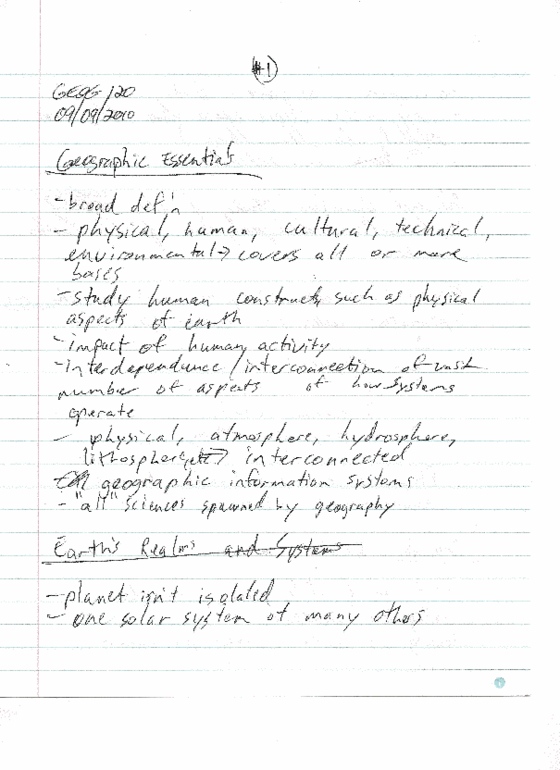 #1
GEOG 120
09/09/2010
Geographic Essentials
- broad def'n
- physical, human, cultural, technical,
environmental → covers all or more
bases
- study human constructs, such as physical
aspects of earth
- impact of human activity
- interdependence/interconnection of vast
number of aspects of how systems
operate
- physical, atmosphere, hydrosphere,
lithosphere, etc → interconnected
geographic information systems
- "all" sciences spawned by geography
Earth's Realms and Systems
- planet isn't isolated
- one solar system of many others